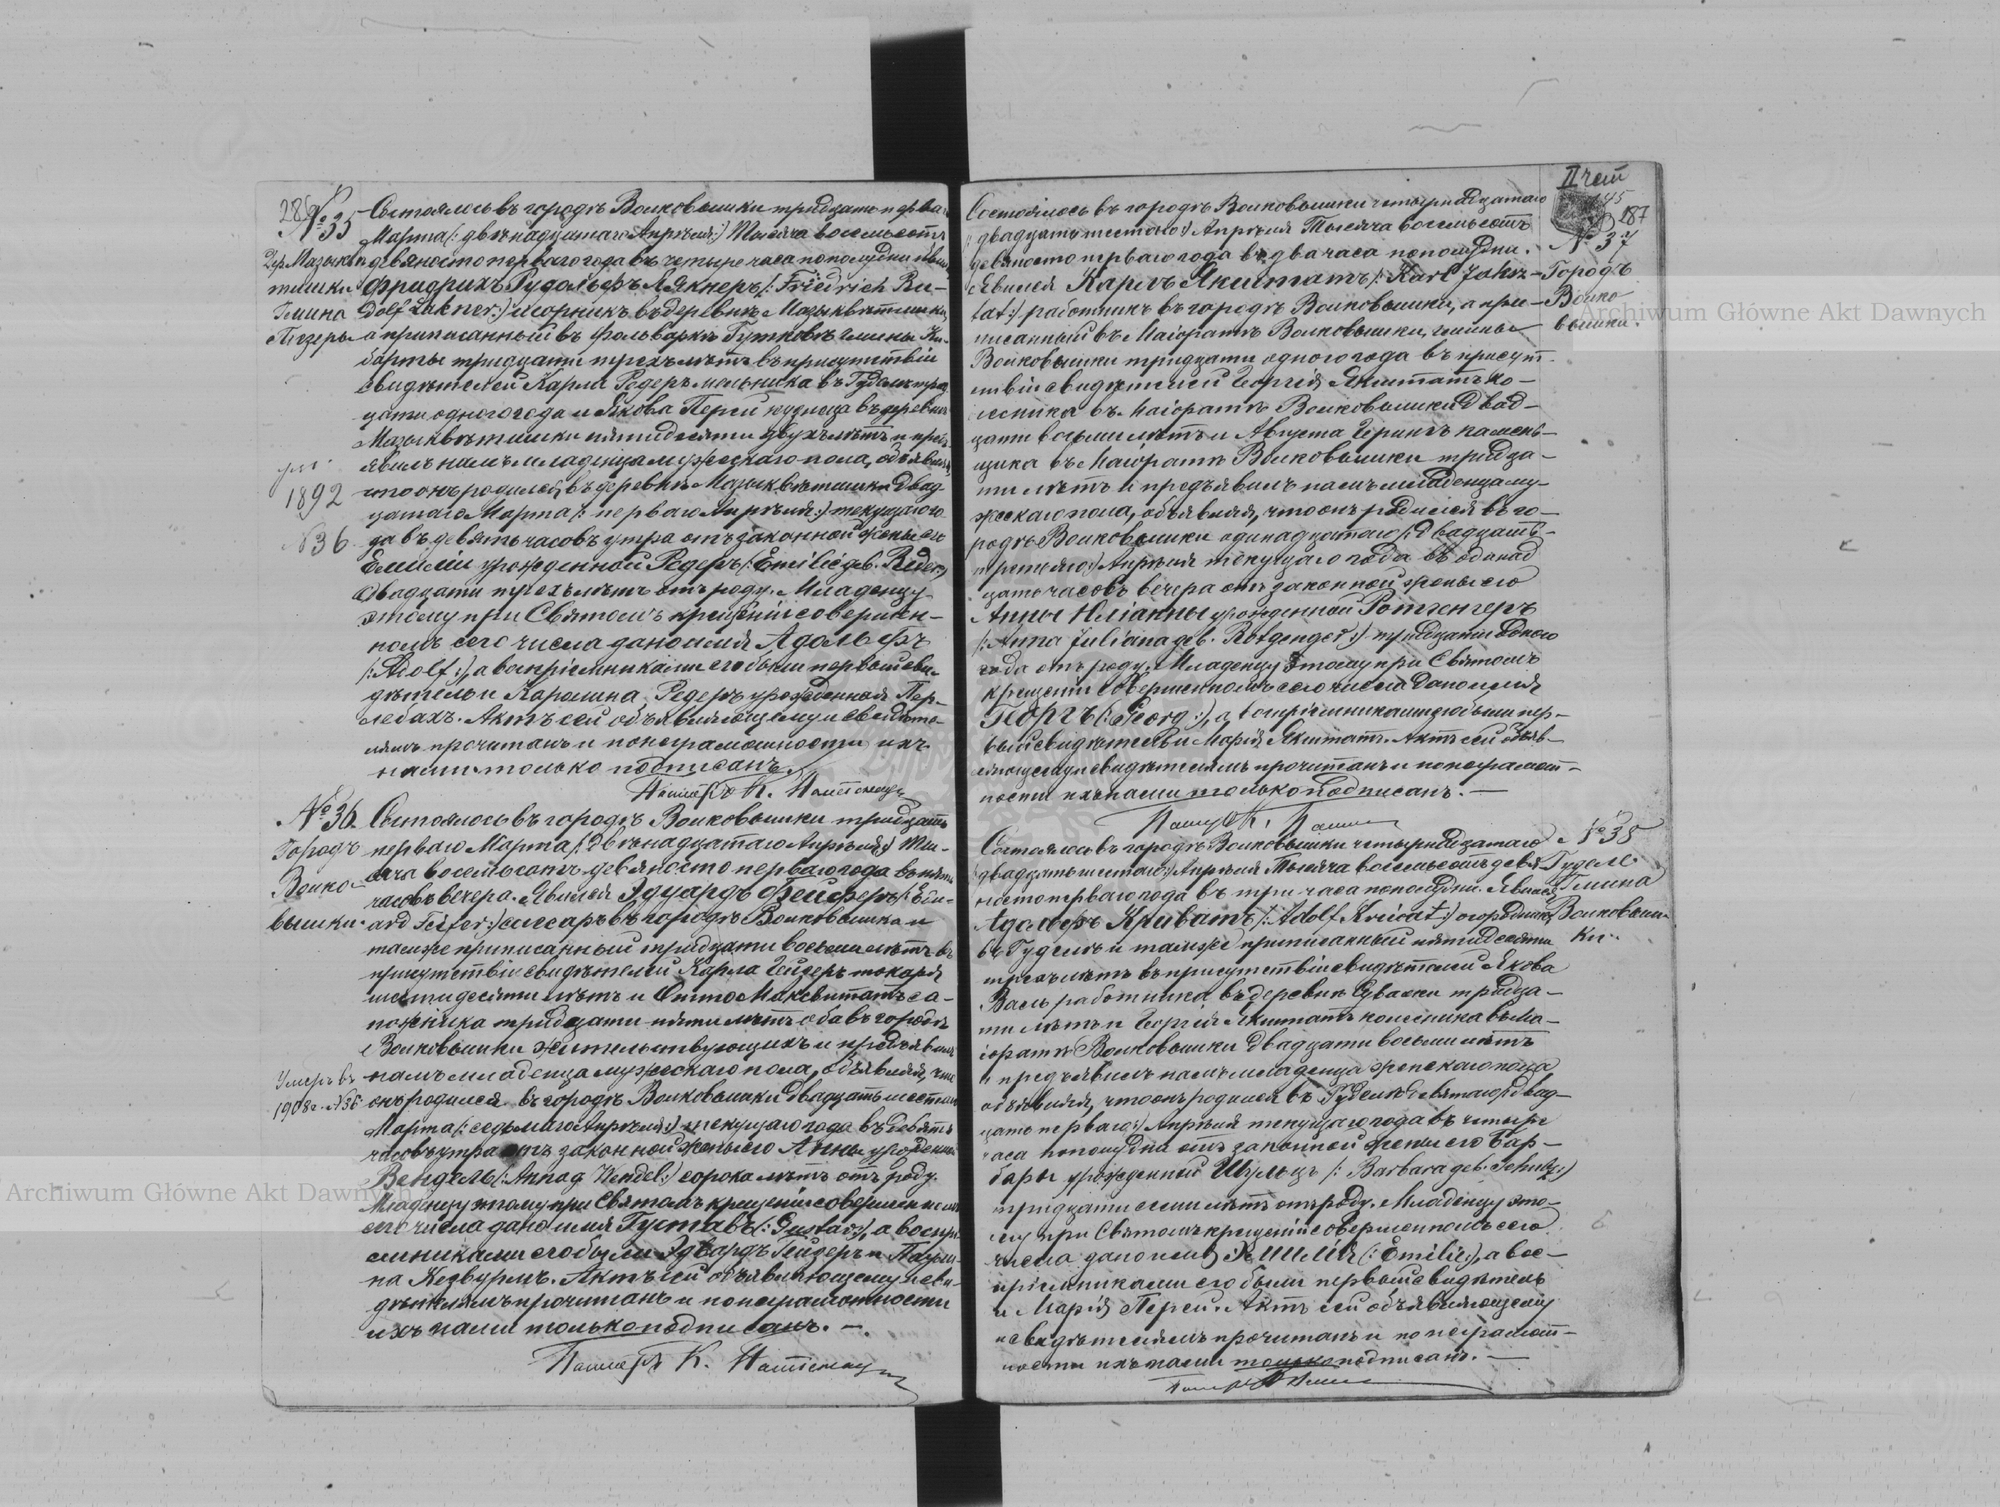 286
№ 35
Дер. Мазыкв
тишки
Гмина
Пизеры
ум.
1892
№36
Состоялось въ городѣ Волковышки тридцать перваго
Марта (: двѣнадцатаго Апрѣля:) Тысяча восемьсотъ
девяносто перваго года въ четыре часа пополудни. Явился
Фридрихъ Рудольфъ Лякнеръ (: Friedrich Ru-
dolf Lakner:) въ деревнѣ
а приписанный въ фольваркѣ Гутковѣ гмины Ки-
барты тридцати трехъ лѣтъ въ присутствіи
свидѣтелей Карла Редеръ мельника въ Гудель трид
цати одного года и Якова Перей кузнеца въ деревнѣ
пятидесяти двухъ лѣтъ и предъ
явилъ намъ младенца мужескаго пола, объявляя,
что онъ родился въ деревнѣ двад-
цатаго Марта (: перваго Апрѣля:) текущаго го
да въ девять часовъ утра отъ законной жены его
Емиліи урожденной Редеръ (: Emilie geb. Reder:)
двадцати трехъ лѣтъ отъ роду. Младенцу
этому при Святомъ крещеніи совершен-
номъ сего числа дано имя Адольфъ
(: Adolf:), а воспріемниками его были первый сви-
дѣтель и Каролина Редеръ урожденная Пер-
лебахъ. Актъ сей объявляющему и свидѣте-
лямъ прочитанъ и по неграмотности ихъ
нами только подписанъ.
Пасторъ К.
№ 36.
Городъ
Волко-
вышки.
Умеръ въ
1908 г. №56
Состоялось въ городѣ Волковышки тридцать
перваго Марта (: Двѣнадцатаго Апрѣля:) Ты-
сяча восемьсотъ девяносто перваго года въ пять
часовъ вечера. Явился Эдуардъ Фейферъ (: Edu-
ard Feifer:) слесарь въ городѣ Волковышки и
тамъ же приписанный тридцати восьми лѣтъ въ
присутствіи свидѣтелей Карла Гейдеръ токаря
шестидесяти лѣтъ и Отто са-
пожника тридцати пяти лѣтъ оба въ городѣ
Волковышки жительствующихъ и предъявилъ
намъ младенца мужескаго пола, объявляя, что
онъ родился въ городѣ Волковышки двадцать шестаго
Марта (: седьмаго Апрѣля:) текущаго года въ девять
часовъ утра отъ законной жены его Анны урожденной
Вендель (: Anna g. Wendel:) сорока лѣтъ отъ роду.
Младенцу этому при Святомъ крещеніи совершенномъ
сего числа дано имя Густавъ (: Gustav:), а воспрі
емниками его были Эдвардъ Гейдеръ и Паули-
на Актъ сей объявляющему и сви-
дѣтелямъ прочитанъ и по неграмотности
ихъ нами только подписанъ. —.
Пасторъ К.
II чет
45
187
№ 37
Городъ
Волко
вышки.
Состоялось въ городѣ Волковышки четырнадцатаго
(: двадцать шестаго:) Апрѣля Тысяча восемьсотъ
девяносто перваго года въ два часа пополудни.
Явился Карлъ Якштатъ (: Karl Jaksz-
tat:) работникъ въ городѣ Волковышки, а при-
писанный въ Маіоратѣ Волковышки, гмины
Волковышки тридцати одного года въ присут-
ствіи свидѣтелей Георгія Якштатъ ко-
лесника въ Маіоратѣ Волковышки двад-
цати восьми лѣтъ и Августа Герингъ камень-
щика въ Маіоратѣ Волковышки тридца-
ти лѣтъ и предъявилъ намъ младенца му-
жескаго пола, объявляя, что онъ родился въ го-
родѣ Волковышки одинадцатаго (: двадцать-
третьяго:) Апрѣля текущаго года въ одинад
цать часовъ вечера отъ законной жены его
Анны Юліанны урожденной Ротгенгеръ
(: Anna Juliana geb. Rotgenger:) тридцати одного
года отъ роду. Младенцу этому при Святомъ
крещеніи совершенномъ сего числа дано имя
Георгъ (: Georg:), а воспріемниками его были пер-
вый свидѣтель и Марія Якштатъ. Актъ сей объяв-
ляющему и свидѣтелямъ прочитанъ и по неграмот-
ности ихъ нами только подписанъ. —
Пасторъ К.
№ 38
Гудель
Гмина
Волковыш-
ки.
Состоялось въ городѣ Волковышки четырнадцатаго
(двадцать шестаго) Апрѣля Тысяча восемьсотъ девя
носто перваго года въ три часа пополудни. Явился
Адольфъ Криватъ (: Adolf Kriwat:) огородникъ
въ Гудель и тамъ же приписанный пятидесяти
трехъ лѣтъ въ присутствіи свидѣтелей Якова
Валь работника въ деревнѣ тридца-
ти лѣтъ и Георгія Якштатъ колесника въ Ма-
іоратѣ Волковышки двадцати восьми лѣтъ
и предъявилъ намъ младенца женскаго пола
объявляя, что онъ родился въ Гудель девятаго (: двад-
цать перваго:) Апрѣля текущаго года въ четыре
часа пополудни отъ законной жены его Бар-
бары урожденной Шульцъ (: Barbara geb. Schulz:)
тридцати семи лѣтъ отъ роду. Младенцу это-
му при Святомъ крещеніи совершенномъ сего
числа дано имя Эмилія (: Emilie:), а вос-
пріемниками его были первый свидѣтель
и Марія Перей. Актъ сей объявляющему
и свидѣтелямъ прочитанъ и по неграмот-
ности ихъ нами только подписанъ. —
Archiwum Główne Akt Dawnych
Archiwum Główne Akt Dawnych